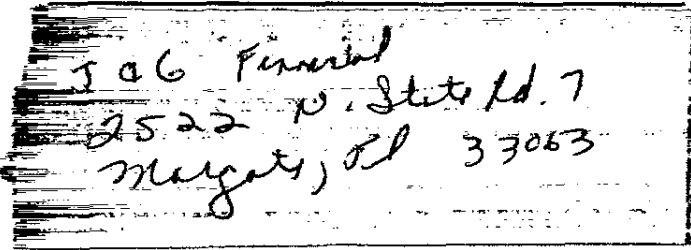 J a G Financial
2522 N. State Rd. 7
Margate, Fl 33063